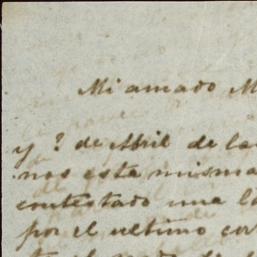 Mi amado M
y ? de Abril de la
nos esta misma
contestado una la
por el ultimo cor